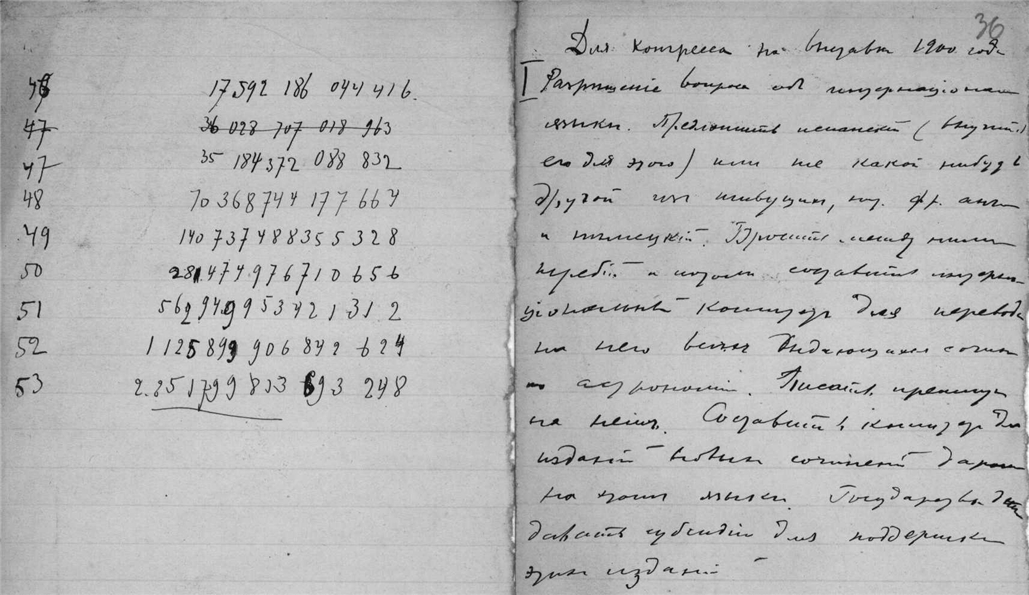 46 17592 186 044 416.
47 36 028 707 018 963
47 35 184372 088 832
48 70 368744 177 664
49 140 737488355 328
50 281 474976710 656
51 562 949953421 312
52 1 125 899 906 842 624
53 2.251799 813 693 248
36
Для конгресса на выставке 1900 года
I Разрешение вопроса объ интернаціональн
языке. Предложить испанский (выучить
его для этого) или же какой нибудь
другой изъ живущих, фр. англ
и немецкій. Бросить между ними
жребій и потом составить интерн
ціональный комитет для перевода
на него всех выдающихся сочин
по астрономіи. Писать преимущ
на нем. Составить комитет для
изданій новых сочинений даром
на этом языке. Государства
давать субсидіи для поддержки
этих изданій